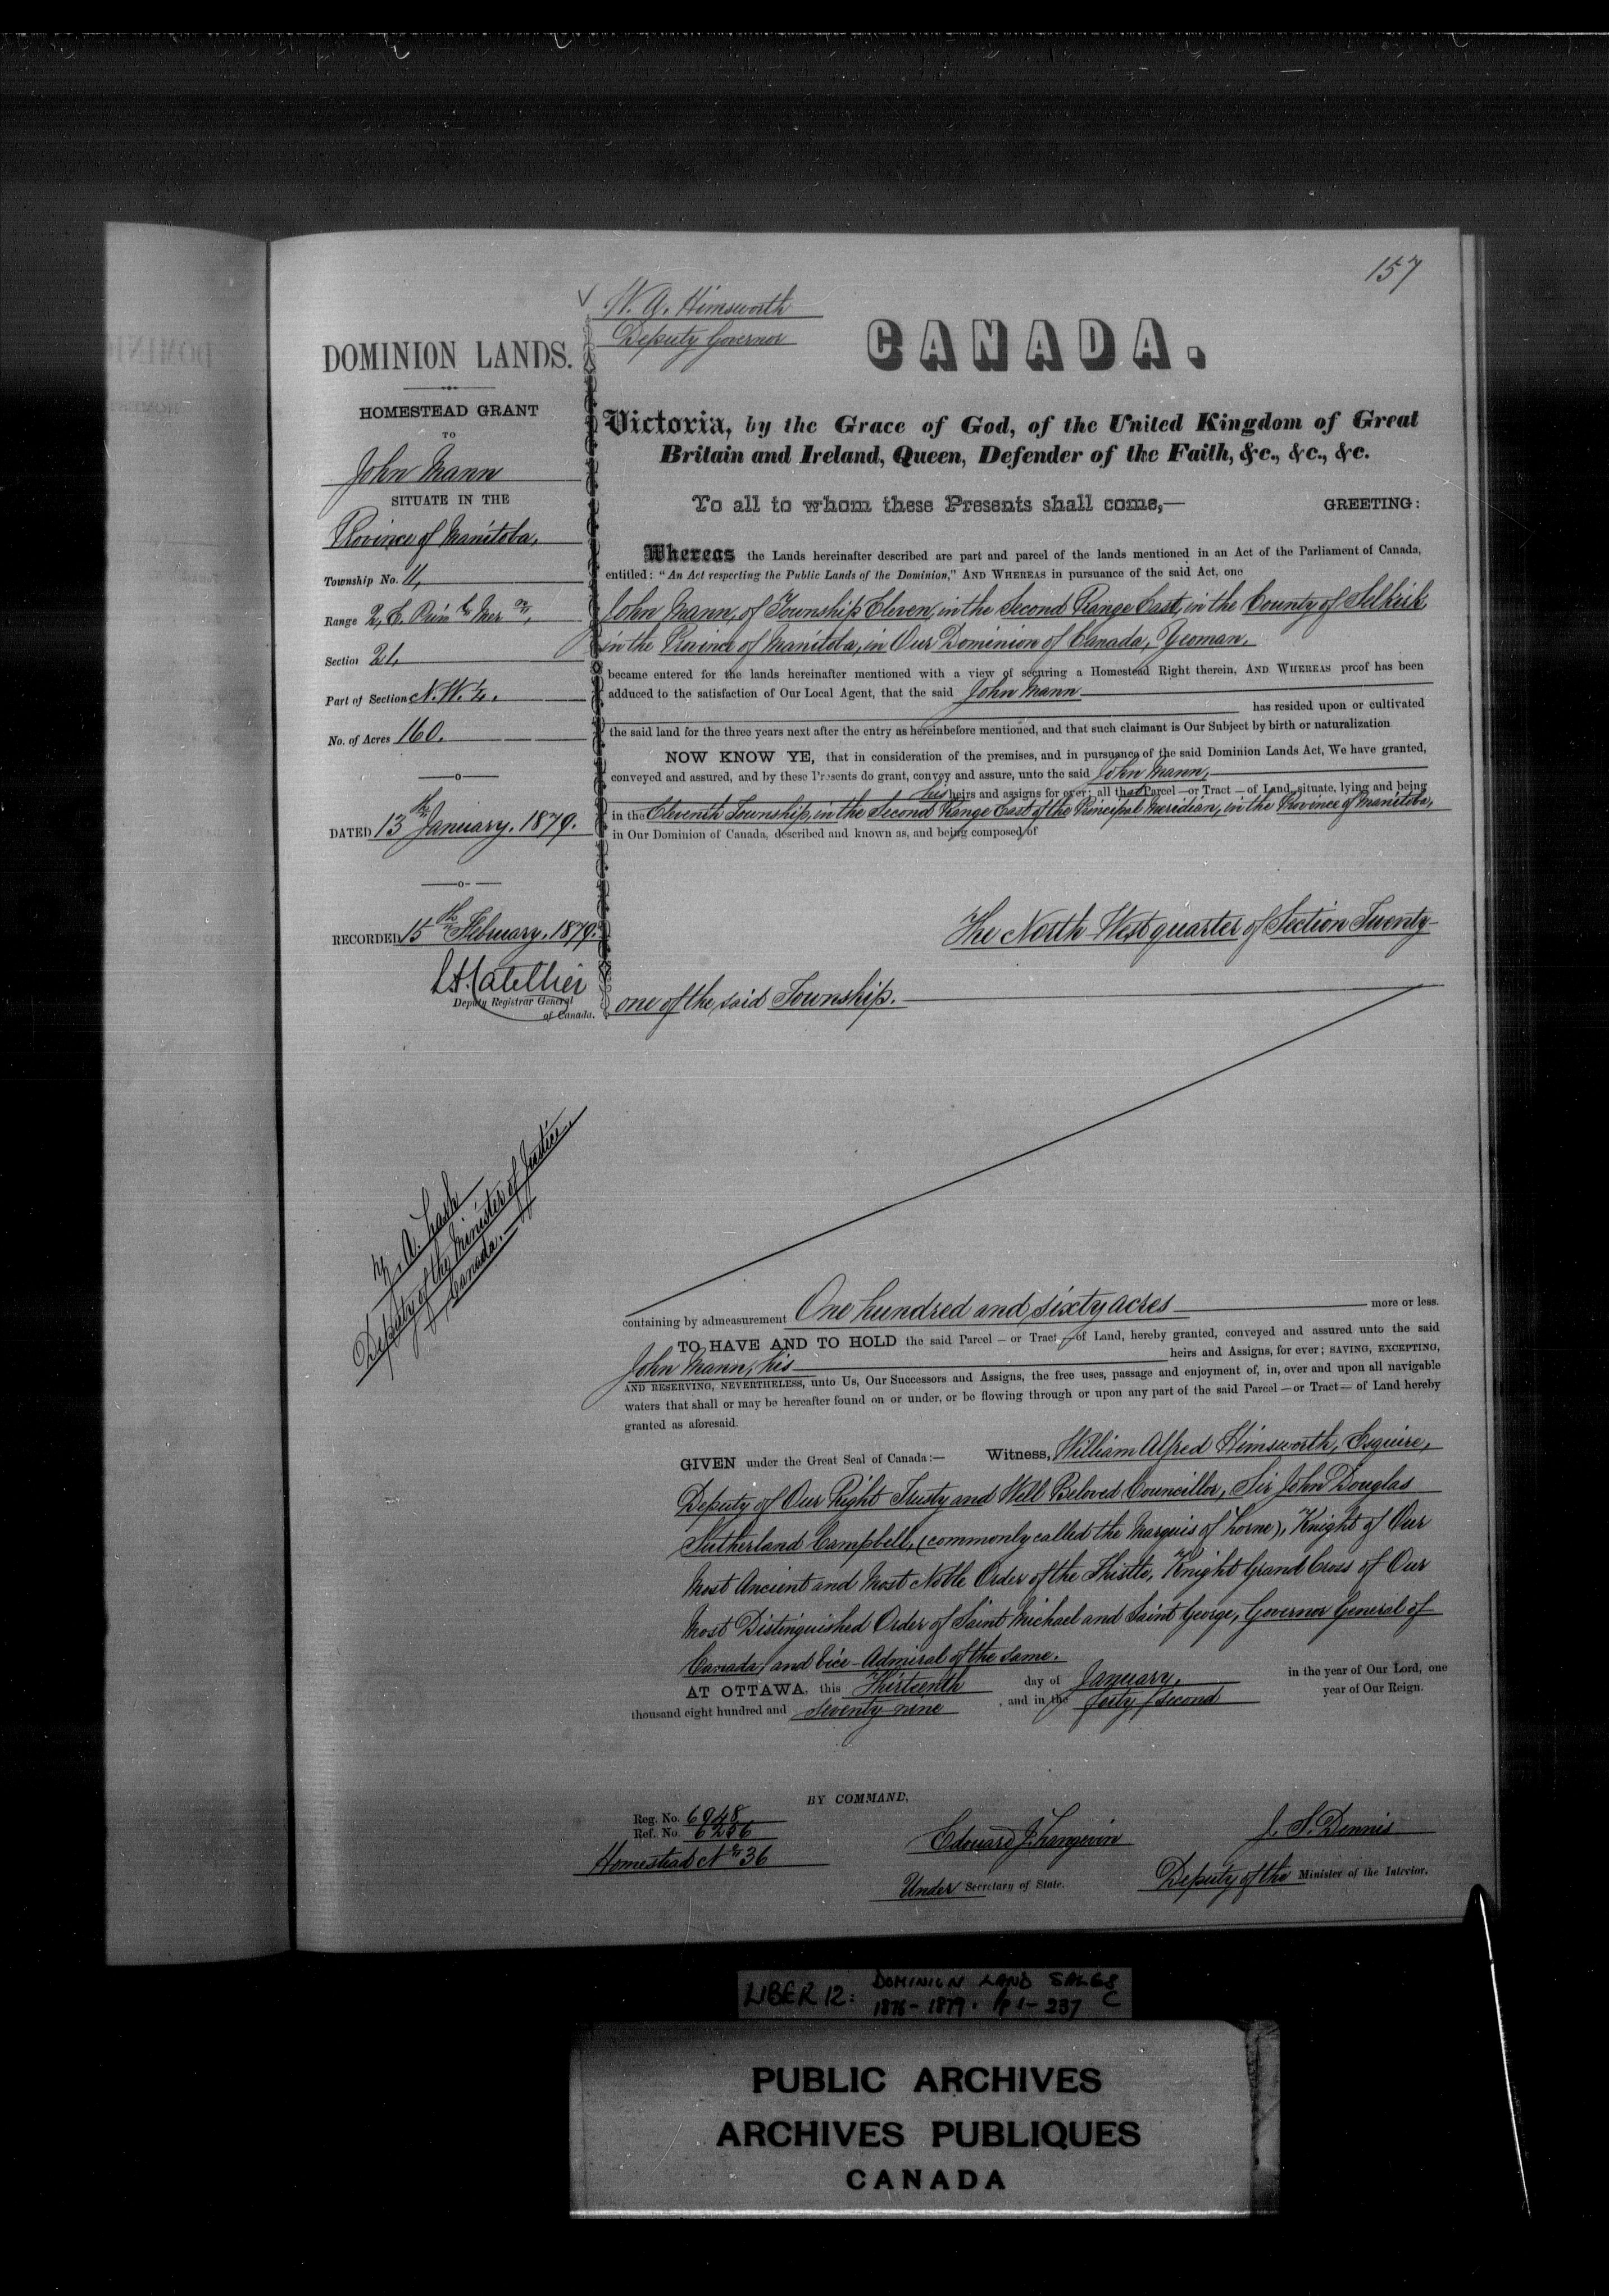 157
W. A. Himsworth
Deputy Governor
CANADA.
DOMINION LANDS.
HOMESTEAD GRANT
TO
John Mann
SITUATE IN THE
Province of Manitoba,
Township No. 11,
Range 2, E. Prin^l Mer^n,
Section 21,
Part of Section N.W. ¼.
No. of Acres 160.
DATED 13^th January, 1879.
RECORDED 15^th February, 1879.
Deputy Registrar General
of Canada.
Z. A. Lash
Deputy of the Minister of Justice,
Canada.
Victoria, by the Grace of God, of the United Kingdom of Great
Britain and Ireland, Queen, Defender of the Faith, &c., &c., &c.
To all to whom these Presents shall come,— GREETING:
Whereas the Lands hereinafter described are part and parcel of the lands mentioned in an Act of the Parliament of Canada,
entitled: "An Act respecting the Public Lands of the Dominion," AND WHEREAS in pursuance of the said Act, one
John Mann, of Township Eleven, in the Second Range East, in the County of Selkirk,
in the Province of Manitoba, in Our Dominion of Canada, Yeoman,
became entered for the lands hereinafter mentioned with a view of securing a Homestead Right therein, AND WHEREAS proof has been
adduced to the satisfaction of Our Local Agent, that the said John Mann
has resided upon or cultivated
the said land for the three years next after the entry as hereinbefore mentioned, and that such claimant is Our Subject by birth or naturalization
NOW KNOW YE, that in consideration of the premises, and in pursuance of the said Dominion Lands Act, We have granted,
conveyed and assured, and by these Presents do grant, convey and assure, unto the said John Mann,
his heirs and assigns for ever; all that Parcel—or Tract—of Land, situate, lying and being
in the Eleventh Township, in the Second Range East of the Principal Meridian, in the Province of Manitoba,
in Our Dominion of Canada, described and known as, and being composed of
The North West quarter of Section Twenty-
one of the said Township.
containing by admeasurement One hundred and sixty acres more or less.
TO HAVE AND TO HOLD the said Parcel—or Tract—of Land, hereby granted, conveyed and assured unto the said
John Mann, his heirs and Assigns, for ever; SAVING, EXCEPTING,
AND RESERVING, NEVERTHELESS, unto Us, Our Successors and Assigns, the free uses, passage and enjoyment of, in, over and upon all navigable
waters that shall or may be hereafter found on or under, or be flowing through or upon any part of the said Parcel—or Tract—of Land hereby
granted as aforesaid.
GIVEN under the Great Seal of Canada:— Witness, William Alfred Himsworth, Esquire,
Deputy of Our Right Trusty and Well Beloved Councillor, Sir John Douglas
Sutherland Campbell, (commonly called the Marquis of Lorne), Knight of Our
Most Ancient and Most Noble Order of the Thistle, Knight Grand Cross of Our
Most Distinguished Order of Saint Michael and Saint George, Governor General of
Canada, and Vice-Admiral of the same.
AT OTTAWA, this Thirteenth day of January, in the year of Our Lord, one
thousand eight hundred and seventy-nine, and in the forty second year of Our Reign.
BY COMMAND,
Reg. No. 6948
Ref. No. 6256
Homestead N^o 36
Edouard J. Langevin
Under Secretary of State.
J. S. Dennis
Deputy of the Minister of the Interior.
LIBER 12: DOMINION LAND SALES
1876-1879. pp 1-237 C
PUBLIC ARCHIVES
ARCHIVES PUBLIQUES
CANADA